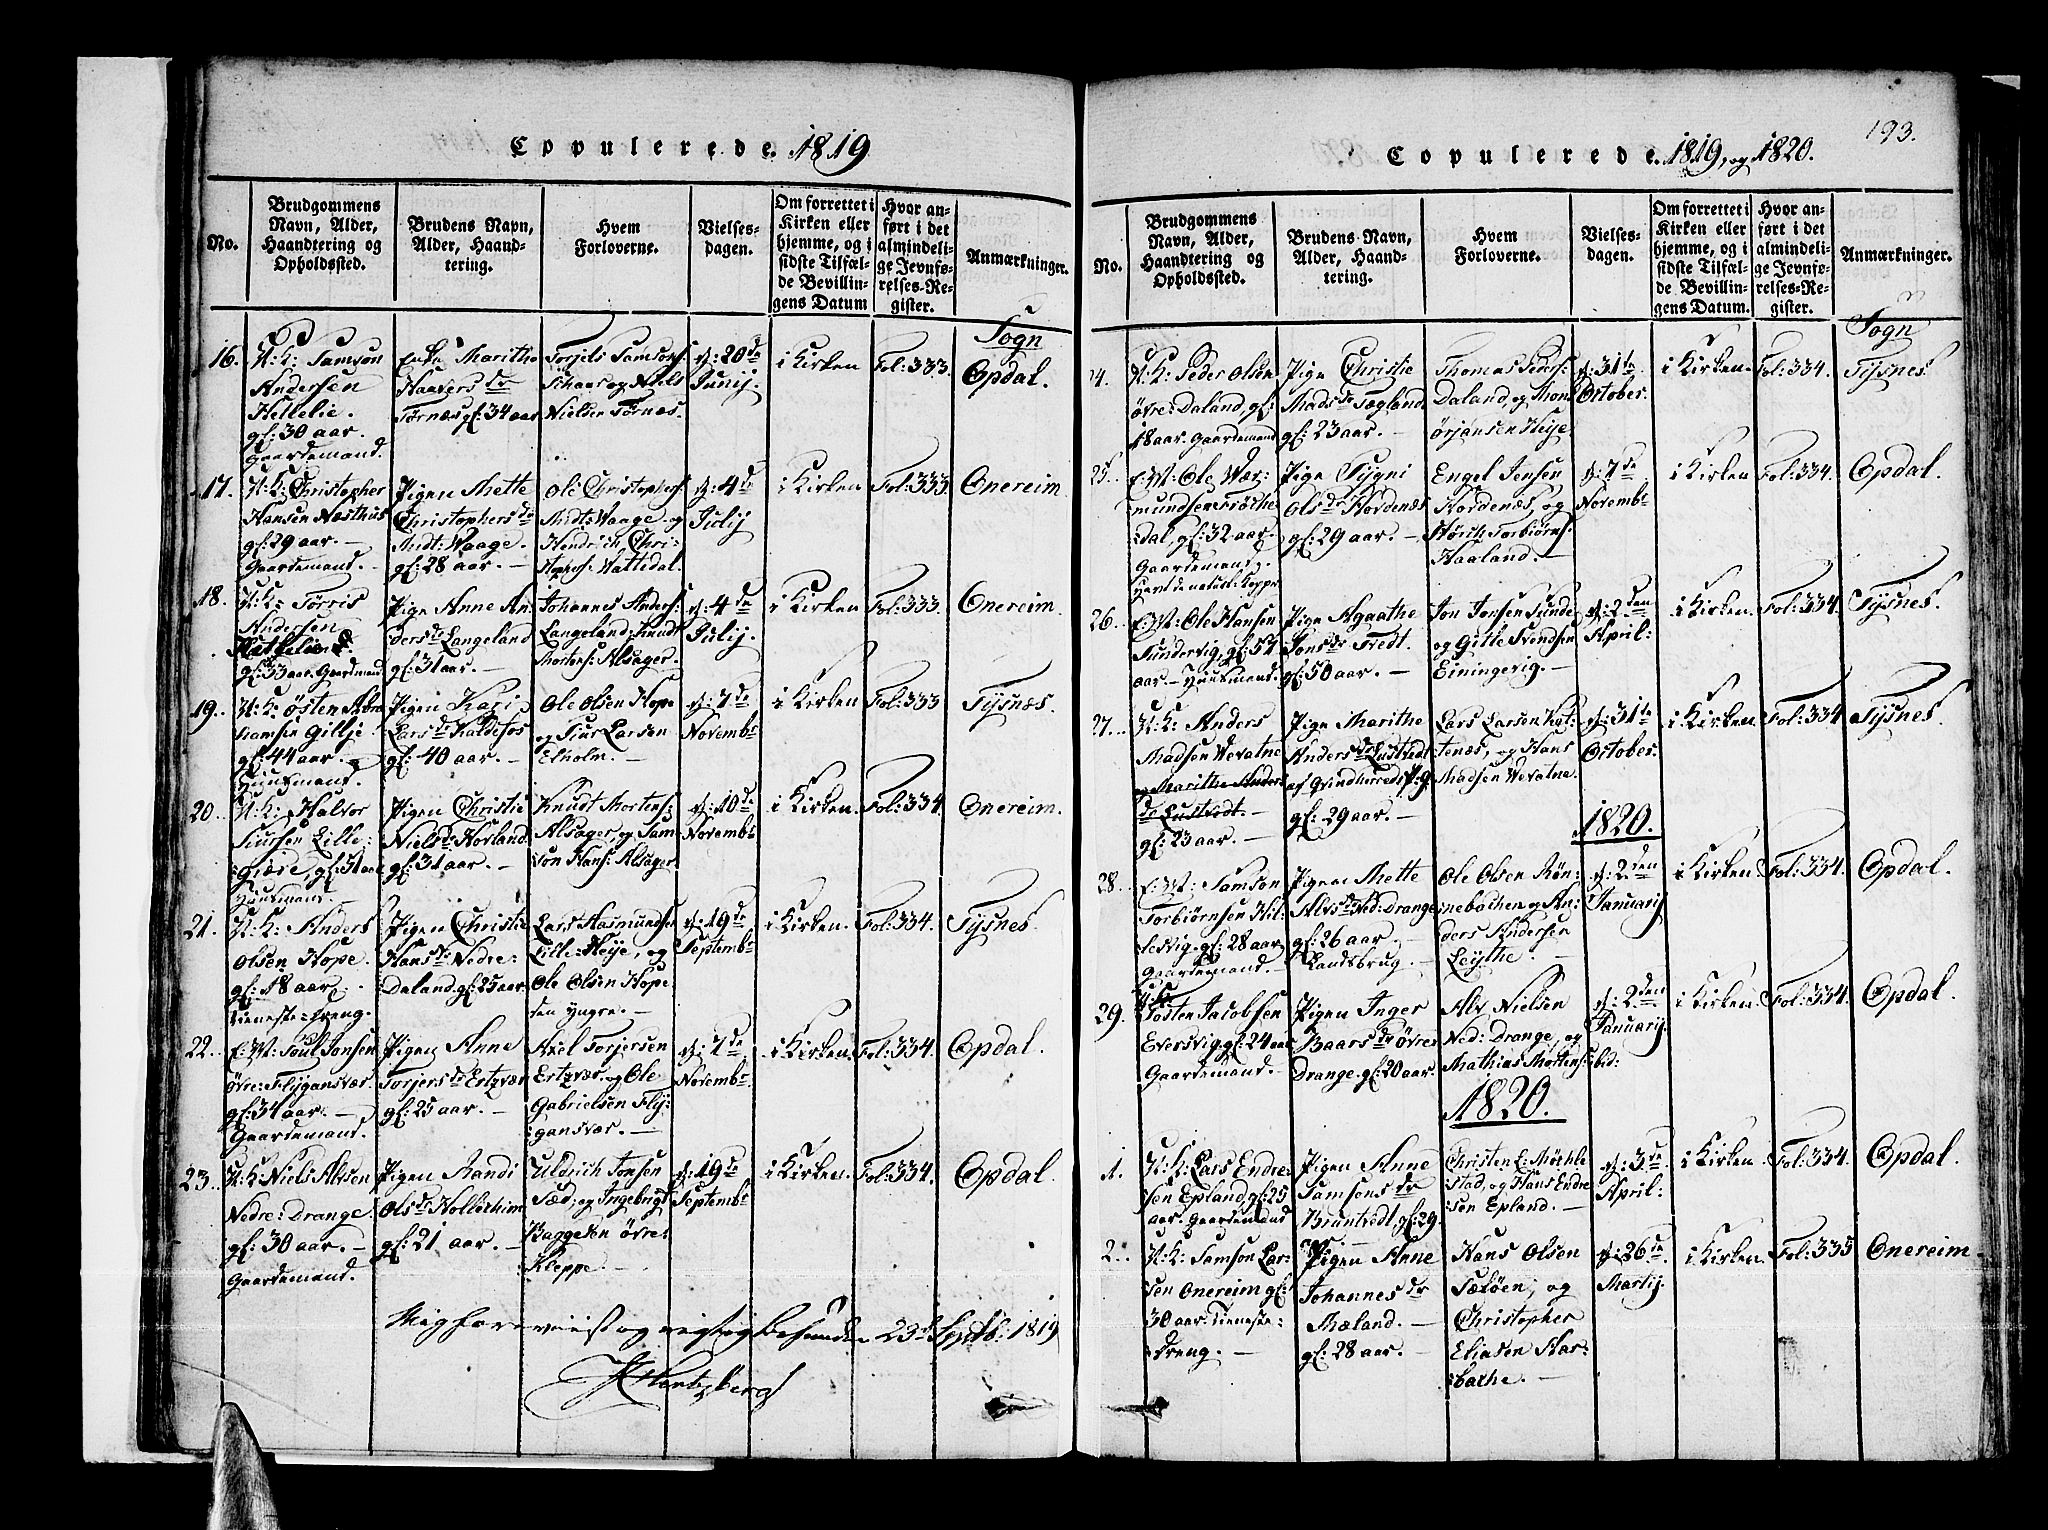 Copulerede 1819
No.
Brudgommens
Navn, Alder,
Haandtering og
Opholdssted.
Brudens Navn,
Alder, Haand-
tering.
Hvem
Forloverne.
Vielses-
dagen.
Om forrettet i
Kirken eller
hjemme, og i
sidste Tilfæl-
de Bevillin-
gens Datum
Hvor an-
ført i det
almindeli-
ge Jevnfø-
relses-Re-
gister.
Anmærkninger.
Sogn
16.
U: K: Samson
Andersen
Hellelie.
gl: 30 aar.
Gaardemand.
Enke Marithe
Haavers dr
Tørnæs gl: 34 aar
Torjels Samsons:
Schaar og Niels
Nielsen Tørnæs.
d: 20de
Junij.
i Kirken
Fol: 333.
Opdal.
17.
U: K: Christopher
Hansen Næsthus
gl: 29 aar. —
Gaardemand.
Pigen Mette
Christophers dr
Midt: Waage.
gl: 28 aar. —
Ole Christophers:
Midt: Waage og
Hendrich Chri-
stophers: Wattedal.
d: 4de
Julij
i Kirken
Fol: 333
Onereim
18.
U: K: Tørris
Andersen
gl: 33 aar. Gaardmand
Pige Anne An
ders dr Langeland
gl: 31 aar. —
Johannes Anders:
Langeland, Knudt
Mortens: Alsager.
d: 4de
Julij.
i Kirken
Fol: 333.
Onereim.
19.
U: K: Østen Abra
hamsen Gillje
gl: 44 aar.
Huusmand.
Pigen Kari
Lars dr Kaldefos
gl: 40 aar. —
Ole Olsen Hope
og Siur Larsen
Elholm. —
d: 7de
Novembr
i Kirken
Fol: 333
Tysnæs.
20.
U: K: Halvor
Siursen Lille:
Giøse, gl: 51 aar
Huusmand.
Pigen Christie
Niels dr Horland
gl: 31 aar. —
Knudt Mortens:
Alsager, og Sam-
son Hans: Alsager
d: 10de
Novembr
i Kirken.
Fol: 334.
Onereim.
21.
U: K: Anders
Olsen Hope.
gl: 18 aar.
tieneste-dreng.
Pigen Christie
Hans dr Nedre:
Daland, gl: 25 aar
Lars Rasmundsen
Lille: Heije, og
Ole Olsen Hope
den yngre. —
d: 19de
Septembr
i Kirken.
Fol: 334.
Tysnes.
22.
E: M: Poul Jonsen
øvre: Flygansvær.
gl: 34 aar. —
Gaardemand.
Pigen Anne
Torjers dr Ertzvær
gl: 25 aar. —
Axel Torjersen
Ertzvær, og Ole
Gabrielsen Fly-
gansvær. —
d: 7de
Novembr
i Kirken.
Fol: 334.
Opdal.
23.
U: K: Niels Alvsen
Nedre: Drange.
gl: 30 aar. —
Gaardemand.
Pigen Randi
Ols dr Hollerhim
gl: 21 aar. —
Uldrich Jonsen
Sæd, og Ingebrigt
Baggesen øvre:
Kleppe. —
d: 19de
Septembr
i Kirken.
Fol: 334.
Opdal.
Mig foreviist og rigtig befunden 23de Septb: 1819
Hertzberg
Copulerede 1819, og 1820.
193.
No.
Brudgommens
Navn, Alder,
Haandtering og
Opholdssted.
Brudens Navn,
Alder, Haand-
tering.
Hvem
Forloverne.
Vielses-
dagen.
Om forrettet i
Kirken eller
hjemme, og i
sidste Tilfæl-
de Bevillin-
gens Datum.
Hvor an-
ført i det
almindeli-
ge Jevnfø-
relses-Re-
gister.
Anmærkninger.
Sogn
24.
U: K: Peder Olsen
øvre: Daland, gl:
18 aar. Gaardemand
Pige Christie
Mads dr Tægland
gl: 23 aar. —
Thomas Peders:
Daland, og Thom
Ørjansen Heije.
d: 31te
October.
i Kirken.
Fol: 334.
Tysnes.
25.
E: M: Ole Wær-
mundsen Frøche
dal, gl: 32 aar.
Gaardemand.
Pige Sygni
Ols dr Nordenæs
gl: 29 aar. —
Engel Jensen
Nordenæs, og
Størch Torbiørns:
Haaland. —
d: 7de
Novembr
i Kirken
Fol: 334.
Opdal.
26.
E: M: Ole Hansen
Sundervig, gl: 52
aar. — Huusmand.
Pige Agaathe
Jons dr Tvedt.
gl: 50 aar. —
Jon Jonsen Sunde
og Gitle Svendsen
Einingevig. —
d: 2den
April:
i Kirken
Fol: 334.
Tysnes.
27.
U: K: Anders
Madsen Wevatne
og Marithe Anders
dr Lustvedt. —
gl: 23 aar. —
Pige Marithe
Anders dr Lustvedt
af Grindherreds P:g
gl: 29 aar. —
Lars Larsen Hyt-
tenæs, og Hans
Madsen Wevatne.
d: 31te
October.
i Kirken
Fol: 334
Tysnes.
1820.
28.
E: M: Samson
Torbiørnsen Hil-
lesvig. gl: 28 aar
Gaardemand. —
Pigen Mette
Alvs dr Ned: Drange
gl: 26 aar.
Landsbrug. —
Ole Olsen Røn-
nebachen og An-
ders Andersen
Leythe. —
d: 2den
Januarij
i Kirken
Fol: 334
Opdal.
29.
U: K:
Tosten Jacobsen
Eversvig, gl: 24 aar
Gaardemand. —
Pigen Inger
Baars dr øvre
Drange. gl: 20 aar.
Alv Nielsen
Ned: Drange, og
Mathias Mortens: ibid:
d: 2den
Januarij.
i Kirken.
Fol: 334.
Opdal.
1820.
1.
U: K: Lars Endre-
sen Epland, gl: 25
aar. Gaardemand
Pigen Anne
Samsons dr
Bruntvedt, gl: 29.
Christen E: Møchle
stad, og Hans Endre
sen Epland. —
d: 3de
April:
i Kirken
Fol: 334.
Opdal.
2.
U: K: Samson Lar-
sen Onereim gl:
30 aar. tieneste-
dreng. —
Pigen Anne
Johannes dr
Mæland. —
gl: 28 aar. —
Hans Olsen
Sætøen, og
Christopher
Eliasen Skar-
bathe. —
d: 26de
Martij.
i Kirken.
Fol: 335
Onereim